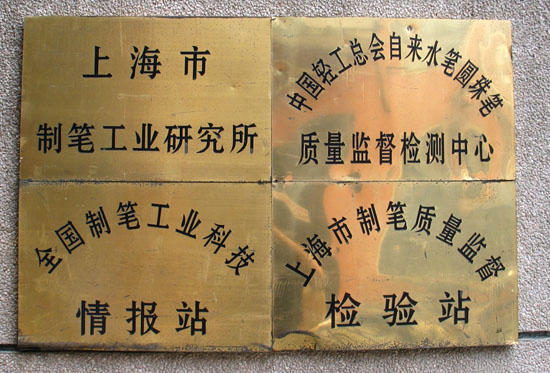 上海市
制笔工业研究所
中国轻工总会自来水笔圆珠笔
质量监督检测中心
全国制笔工业科技
情报站
上海市制笔质量监督
检验站